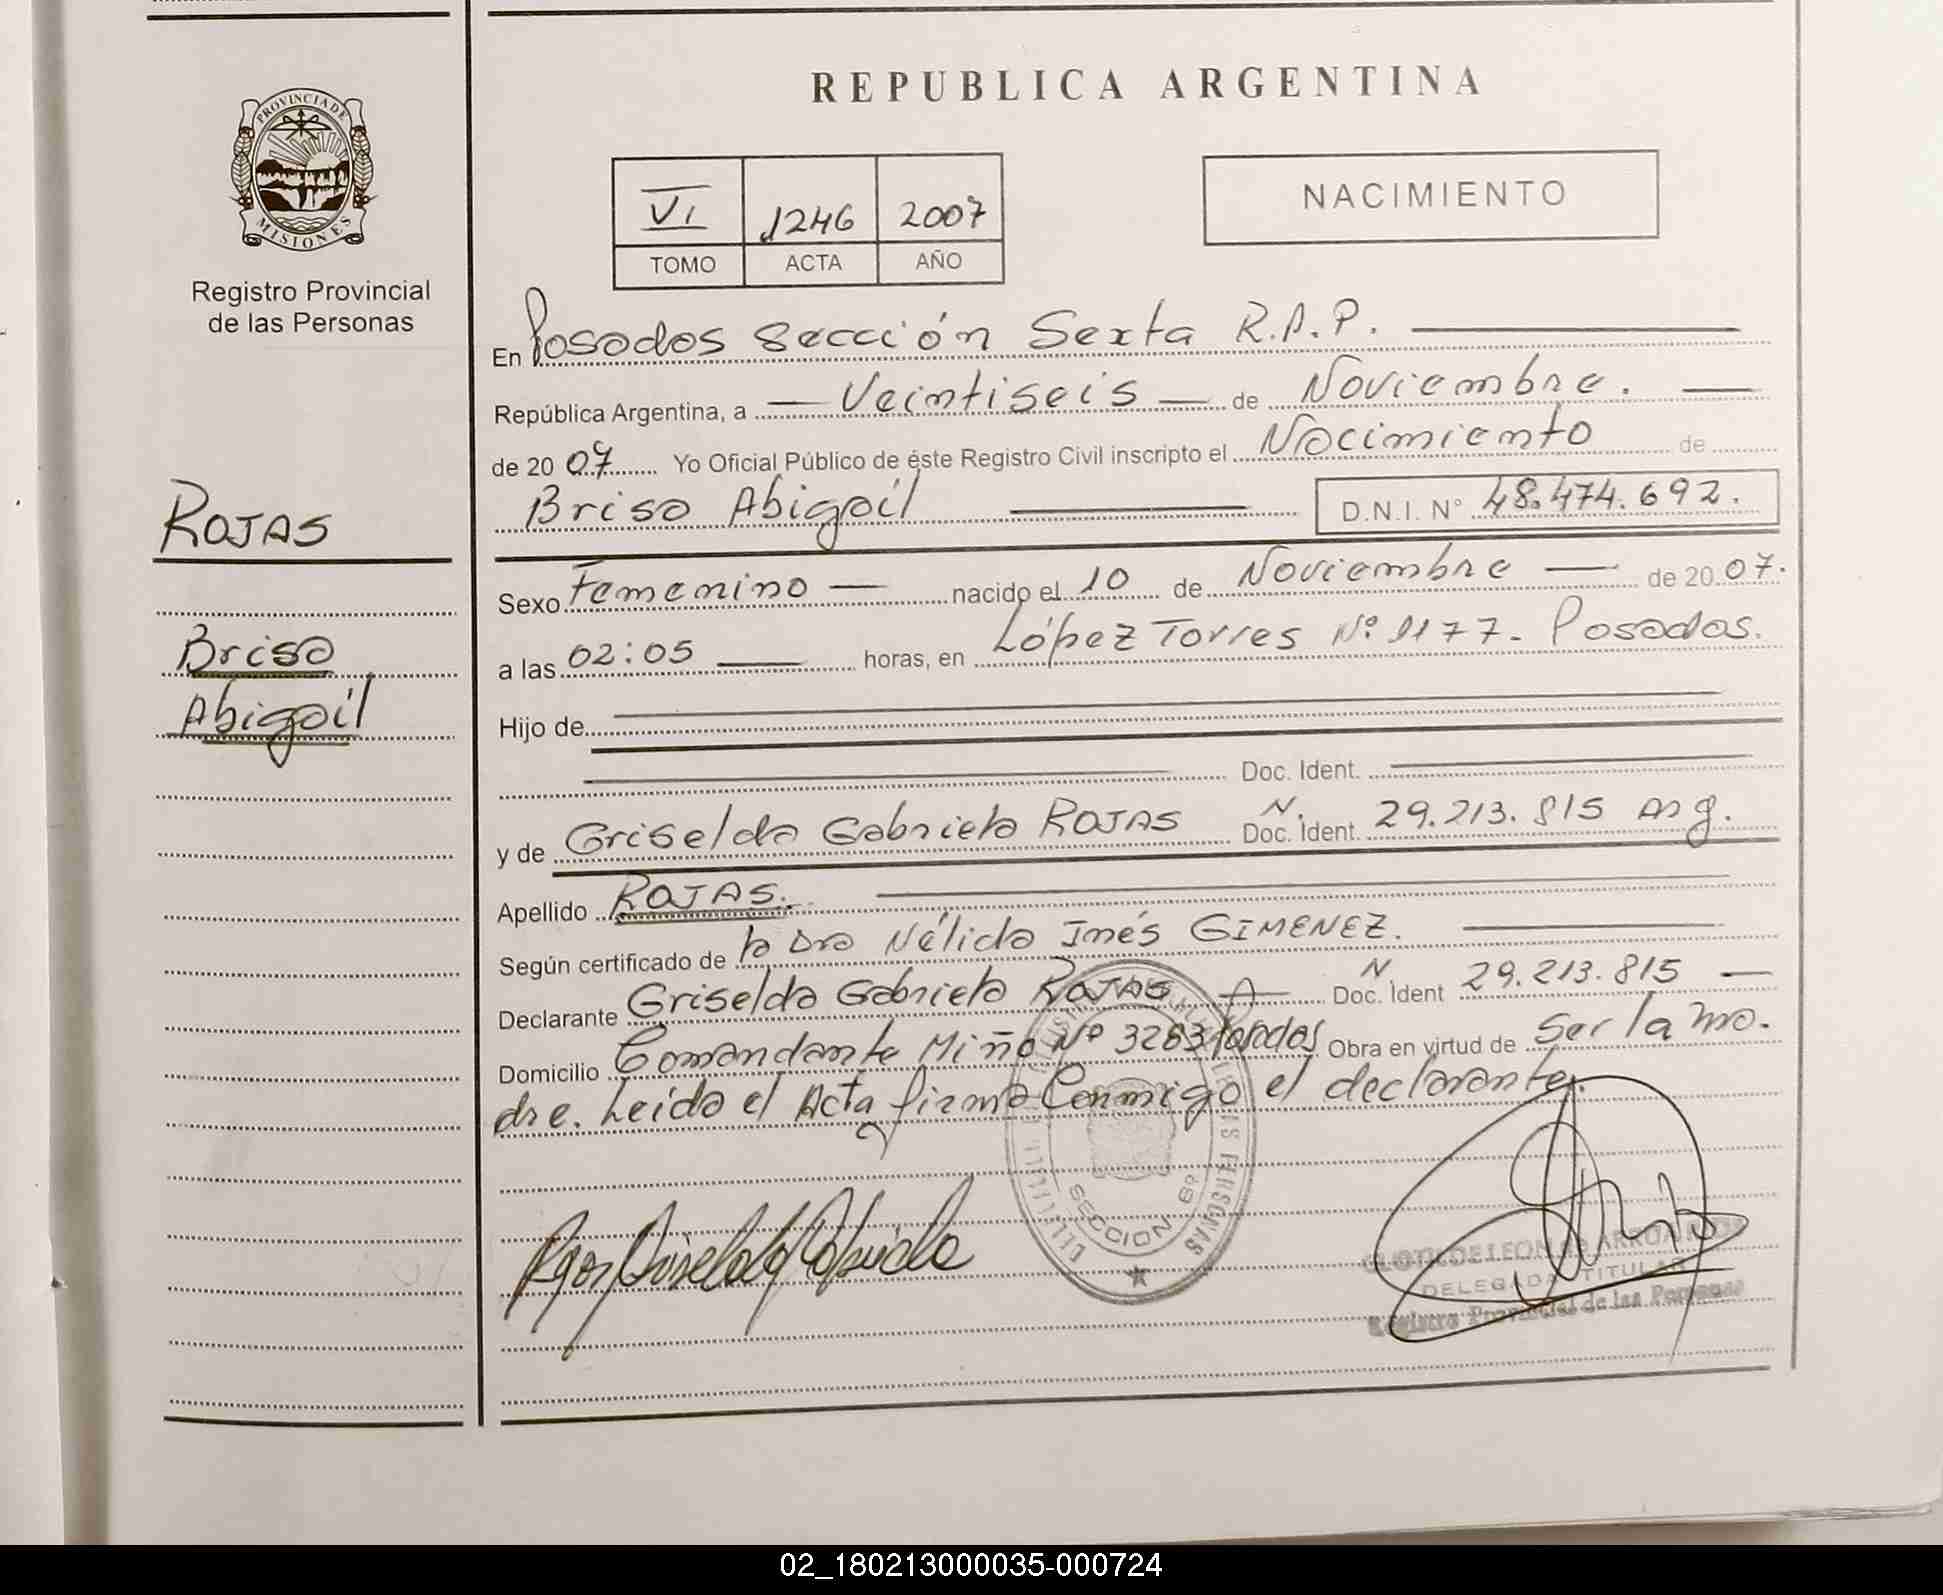 REPUBLICA ARGENTINA
PROVINCIA DE
MISIONES
Registro Provincial
de las Personas
VI 1246 2007
TOMO ACTA AÑO
NACIMIENTO
ROJAS
Brisa
Abigail
En Posadas Sección Sexta R.P.P.
República Argentina, a Veintiseis de Noviembre.
de 2007 Yo Oficial Público de éste Registro Civil inscripto el Nacimiento de
Brisa Abigail D.N.I. N° 48.474.692.
Sexo Femenino nacido el 10 de Noviembre de 2007.
a las 02:05 horas, en López Torres Nº 1177. Posadas.
Hijo de
Doc. Ident.
y de Griselda Gabriela ROJAS N. Doc. Ident. 29.213.815 Arg.
Apellido ROJAS.
Según certificado de la Dra Nélida Inés GIMENEZ.
Declarante Griselda Gabriela ROJAS Doc. Ident N 29.213.815
Domicilio Comandante Miño Nº 3283 Posadas Obra en virtud de Ser la ma.
dre. Leida el Acta firma Conmigo el declarante.
SECCION 6º
LAS PERSONAS
Rojas Griselda Gabriela
CLOTILDE LEON de
DELEGADA TITULAR
Registro Provincial de las Personas
02_180213000035-000724